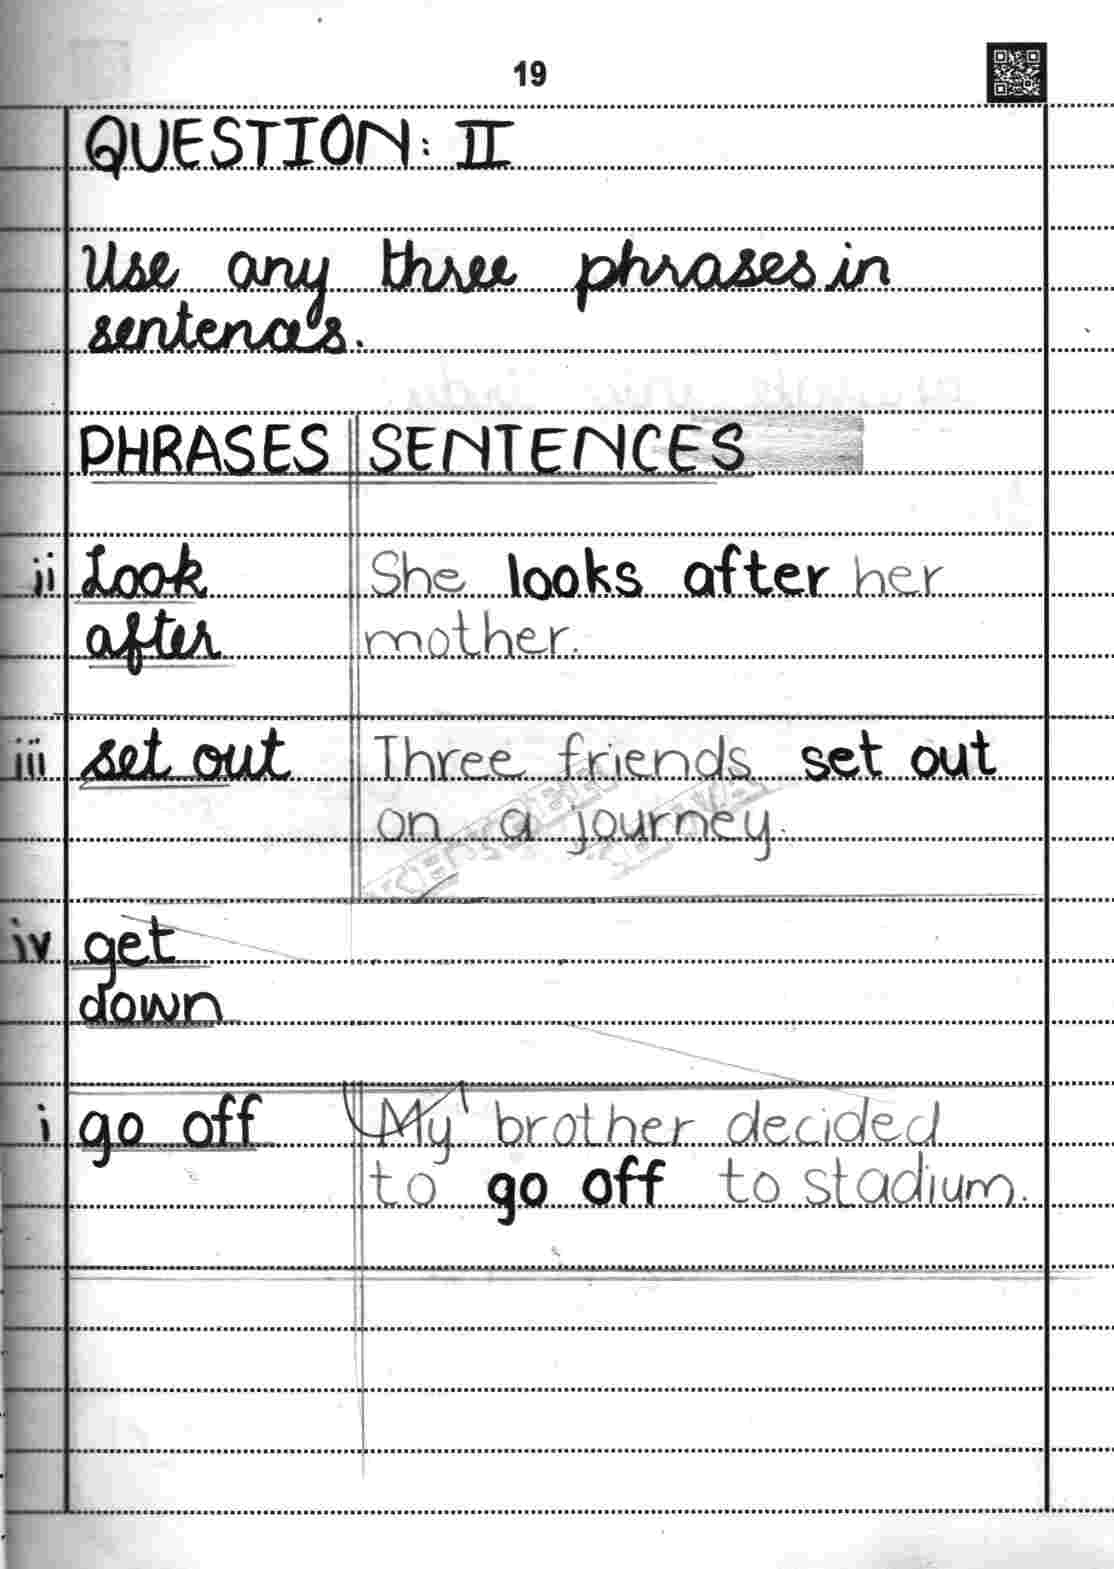 19
QUESTION: II
Use any three phrases in
sentences.
PHRASES SENTENCES
ii Look She looks after her
after mother.
iii set out Three friends set out
on a journey.
iv get
down
i go off My brother decided
to go off to stadium.